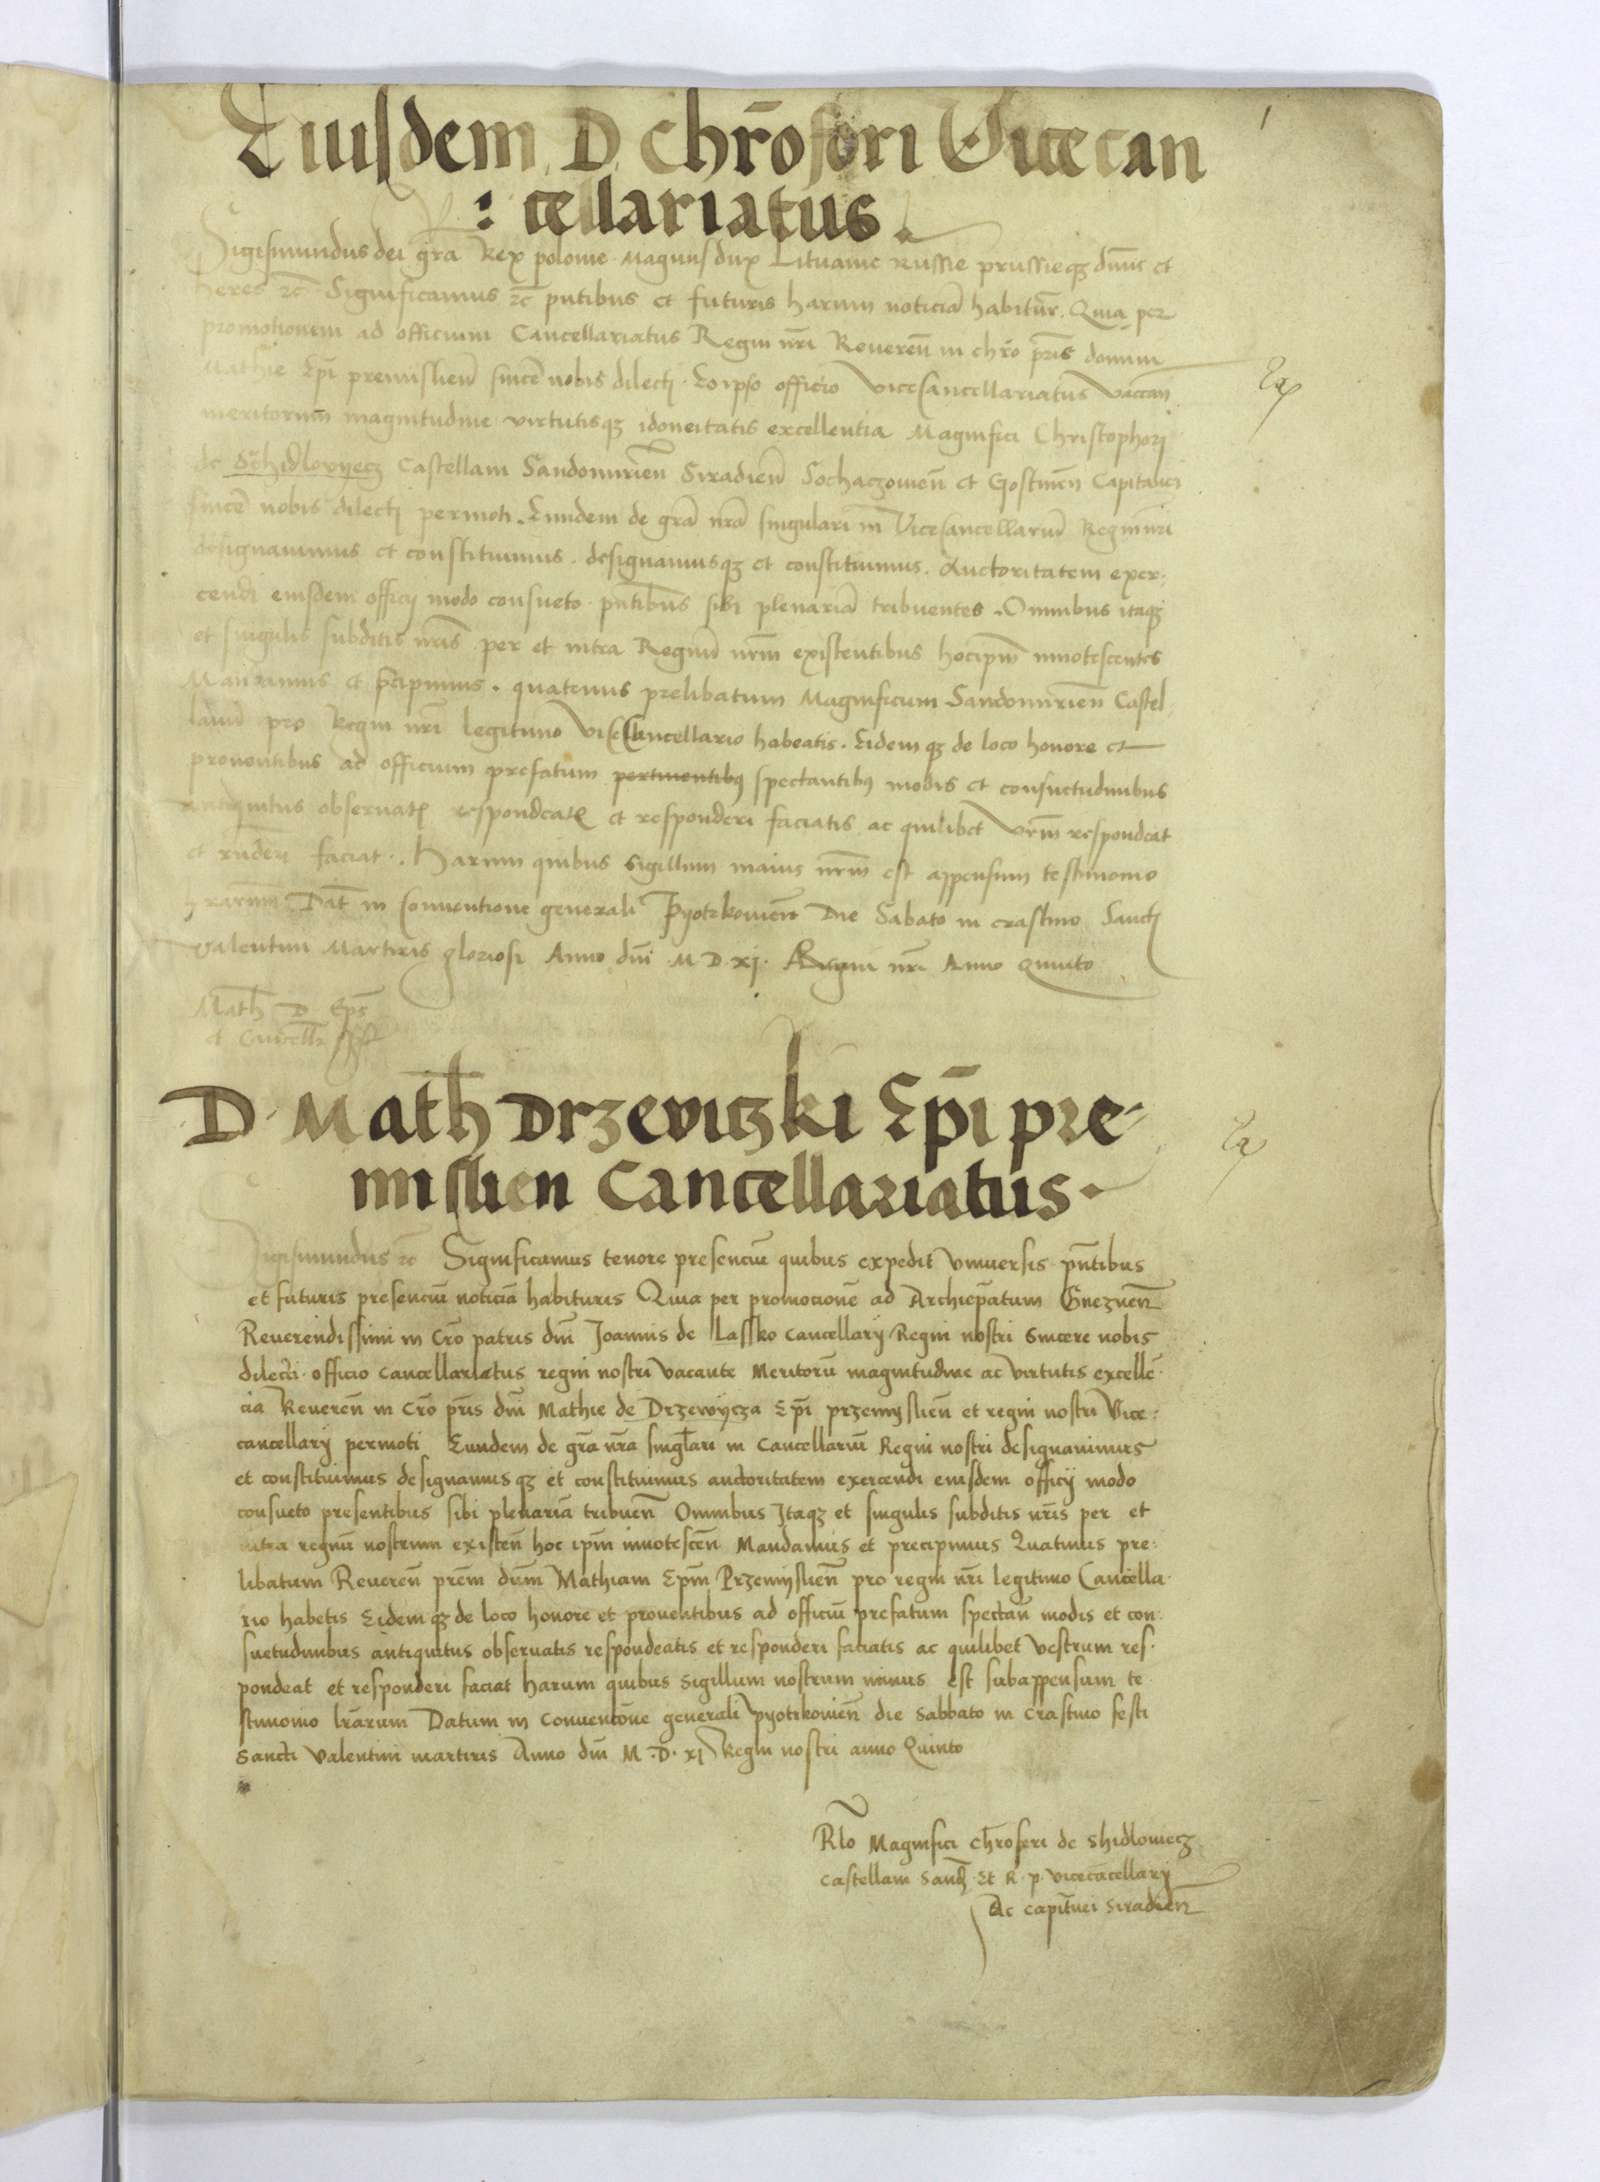 1
Eiusdem D Chr̄ofori Vicecan
: cellariatus.
Sigismundus dei gr̄a Rex polonie Magnus dux Lituanie Russie prussieqꝫ dn̄us et
heres ⁊c̄ Significamus ⁊c̄ pn̄tibus et futuris harum noticiā habitur̄. Quia per
promotionem ad officium Cancellariatus Regni nr̄i Reueren̄ in chr̄o pr̄is domini
Mathie Ep̄i premislien̄ sincē nobis dilecti. Eoipso officio ViceCancellariatus vaccan̄
meritorum magnitudine virtutisqꝫ idoneitatis excellentia Magnifici Christophori
de Schidlovyecz Castellani Sandomirien̄ Siradien̄ Sochaczouien̄ et Gostinen̄ Capitanei
sincē nobis dilecti permoti. Eundem de gr̄a nr̄a singulari in ViceCancellariū Regni nr̄i
designauimus et constituimus. designamusqꝫ et constituimus. Auctoritatem exer:
cendi eiusdem officij modo consueto pn̄tibus sibi plenariā tribuentes. Omnibus itaqꝫ
et singulis subditis nr̄is per et intra Regnū nr̄m existentibus hocipm̄ innotescentes
Mandamus et p̄cipimus. quatenus prelibatum Magnificum Sandomirien̄ Castel
lanū pro Regni nr̄i legitimo ViceCancellario habeatis. Eidemqꝫ de loco honore et
prouentibus ad officium prefatum pertinentibꝰ spectantibꝰ modis et consuetudinibus
antiquitus obseruatꝭ respondeatꝭ et responderi faciatis ac quilibet vr̄m respondeat
et rn̄deri faciat. Harum quibus sigillum maius nr̄m est appensum testimonio
lr̄arum Dat̄ in Conuentione generali Pyotrkouien̄ Die Sabato in crastino Sancti
Valentini Martiris gloriosi Anno dn̄i M D xj. Regni nr̄i Anno Quinto
Math̄ D Ep̄s
et Cancell̄ s̄s̄t
D. Math̄ Drzeviczki Ep̄i pre-
mislien Cancellariatus.
Sigismundus ⁊c̄ Significamus tenore presenciū quibus expedit vniuersis pn̄tibus
et futuris presenciū noticiā habituris Quia per promocionē ad Archiep̄atum Gneznen̄
Reuerendissimi in Cr̄o patris dn̄i Joannis de Lassko cancellarij Regni nostri Sincere nobis
dilecti. officio cancellariatus regni nostri vacante Meritorū magnitudine ac virtutis excellē
cia Reueren̄ in Cr̄o pr̄is dn̄i Mathie de Drzewycza Ep̄i przemyslien̄ et regni nostri Vice:
cancellarij permoti Eundem de gr̄a nr̄a singl̄ari in Cancellariū Regni nostri designauimus
et constituimus designamusqꝫ et constituimus auctoritatem exercendi eiusdem officij modo
consueto presentibus sibi plenariā tribuen̄ Omnibus Itaqꝫ et singulis subditis nr̄is per et
intra regnū nostrum existen̄ hoc ipm̄ innotescen̄ Mandamus et precipimus Quatinus pre:
libatum Reueren̄ prēm dn̄m Mathiam Ep̄m Przemyslien̄ pro regni nr̄i legitimo Cancella
rio habetis Eidemqꝫ de loco honore et prouentibus ad officiū prefatum spectan̄ modis et con:
suetudinibus antiquitus obseruatis respondeatis et responderi faciatis ac quilibet vestrum res.
pondeat et responderi faciat harum quibus Sigillum nostrum minus est subappensum te
stimonio lr̄arum Datum in Conuencōne generali Pyotrkouien̄ die Sabbato in Crastino festi
Sancti Valentini martiris Anno dn̄i M. D. xj Regni nostri anno Quinto
Rlō Magnifici Chr̄oferi de Shidlowiecz
Castellani Sand̄ Et R. p. vicecācellarij
Ac capit̄nei Siradien̄